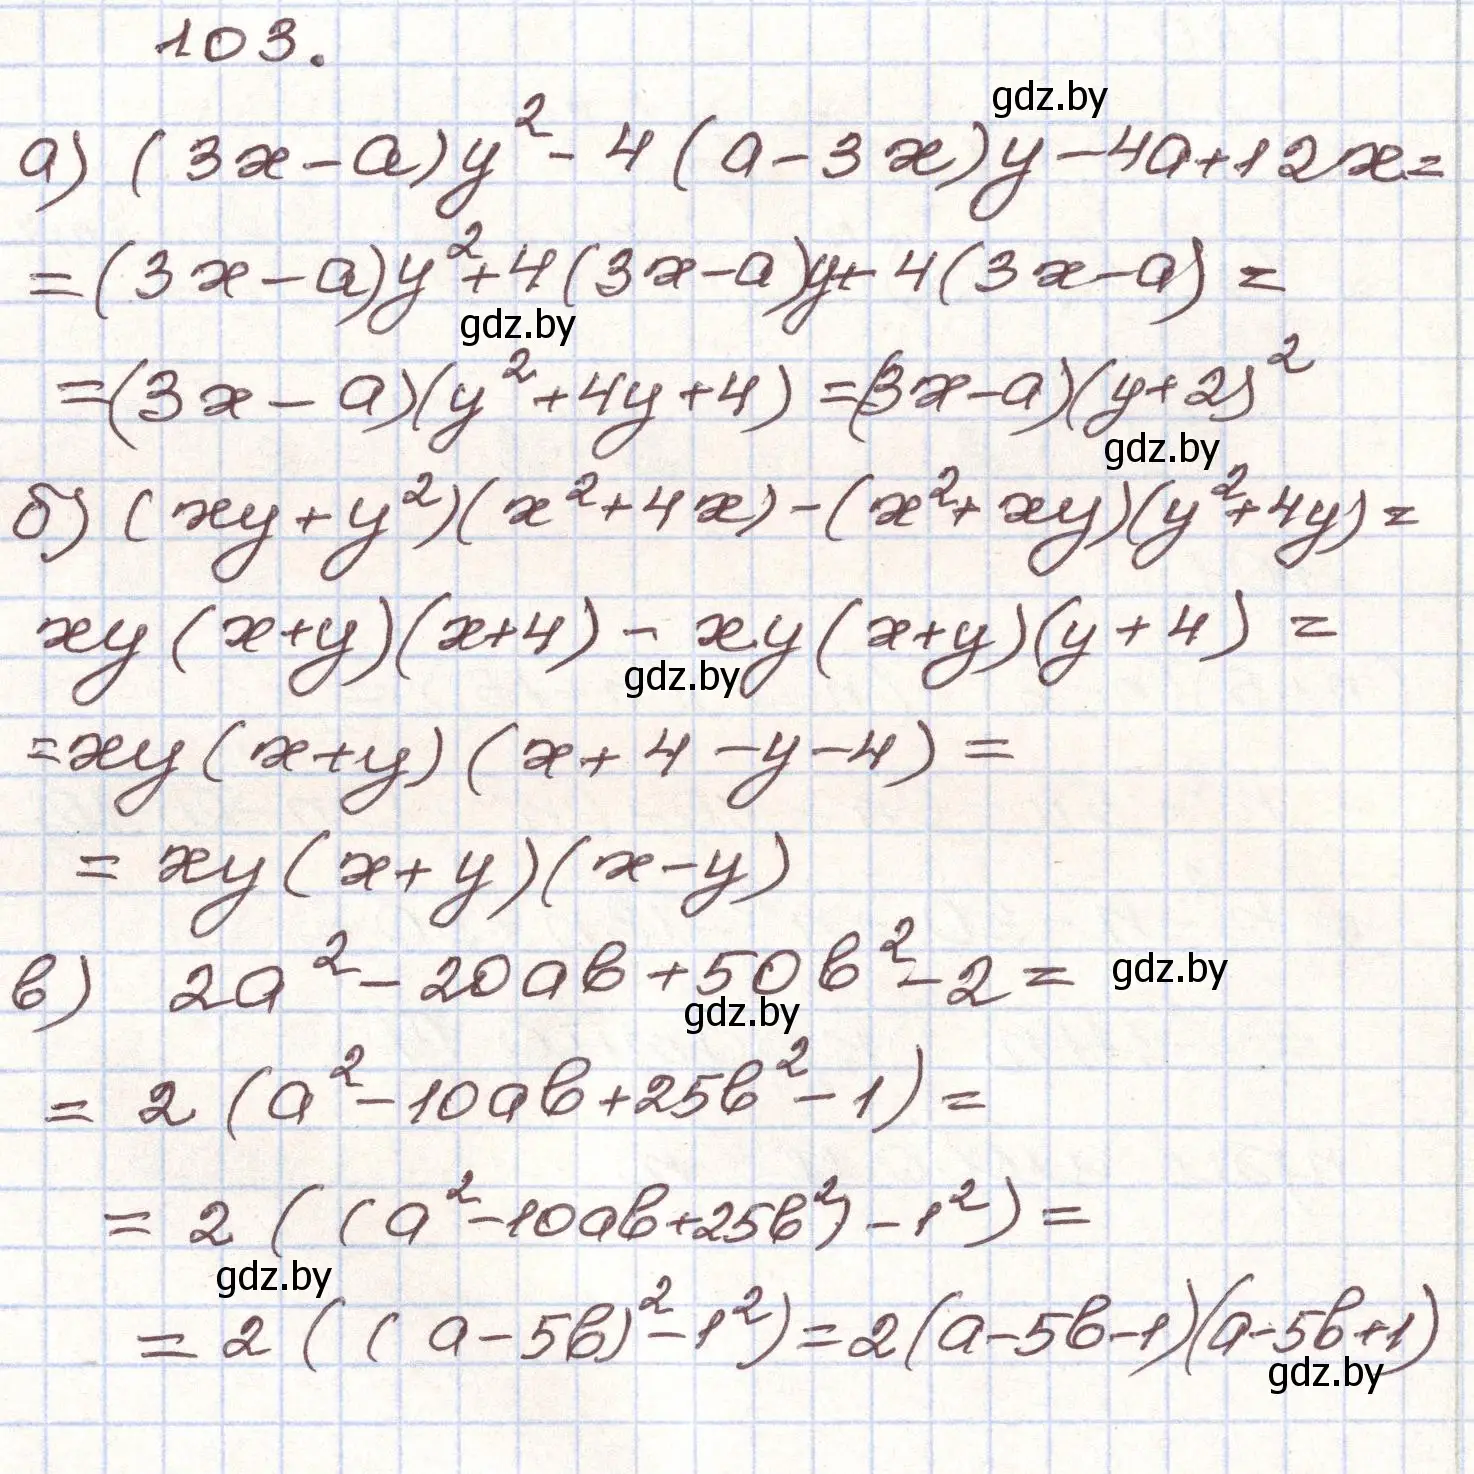 103.
gdz.by
а) (3x-a)y²-4(a-3x)y-4a+12x=
=(3x-a)y²+4(3x-a)y+4(3x-a)=
gdz.by
=(3x-a)(y²+4y+4)=(3x-a)(y+2)²
gdz.by
б) (xy+y²)(x²+4x)-(x²+xy)(y²+4y)=
xy(x+y)(x+4)-xy(x+y)(y+4)=
gdz.by
=xy(x+y)(x+4-y-4)=
=xy(x+y)(x-y)
в) 2a²-20ab+50b²-2= gdz.by
gdz.by
=2(a²-10ab+25b²-1)=
=2((a²-10ab+25b²)-1²)=
gdz.by
=2((a-5b)²-1²)=2(a-5b-1)(a-5b+1)
gdz.by